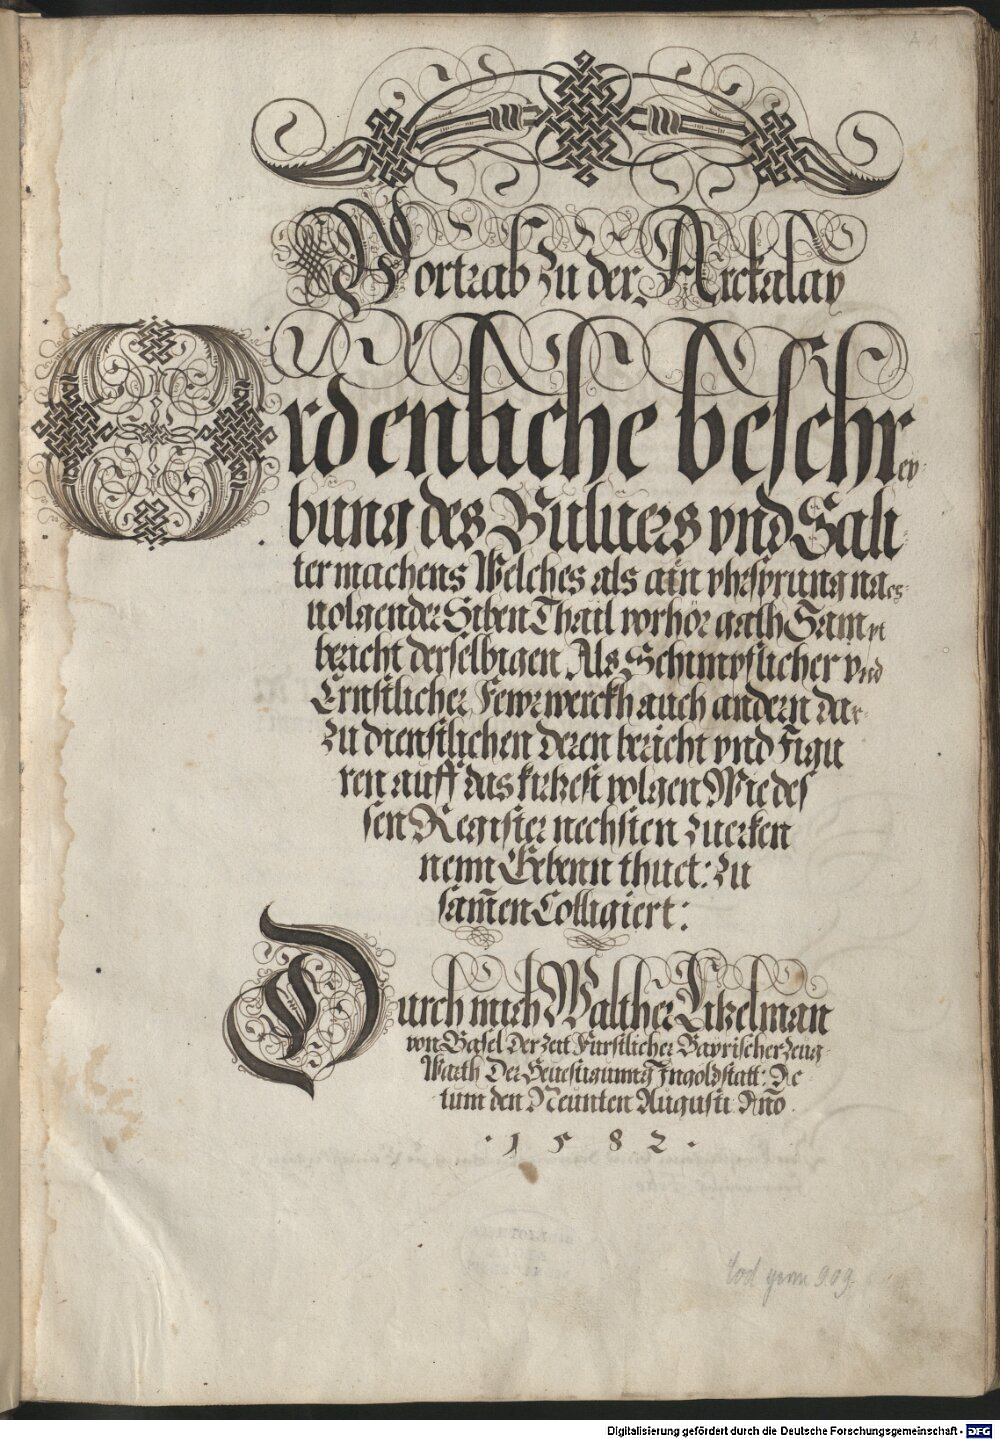 Vortrab zu der Arckalay
Ordenliche beschrey-
bung des Buluers vnd Sali
ter machens Welches als ain vhrsprung naes-
uolgender Siben Thail vorhör gath Sampt
bericht derselbigen Als Schimpflicher vnd
Ernstlicher Fewrwerckh auch andern dar-
zu dienstlichen deren bericht vnd Figu
ren auff das kürtzest volgen Wie des
sen Register nechsten zuerken
nenn Gebenn thuet: zu
sam̅en Colligiert:
Durch mich Walther Litzelman
von Basel Der Zeit Fürstlicher Bayrischer Zeug-
Warth Der Heuestigunng Ingoldstatt: Ac
tum den Neunten Augusti An̅o
· 1 5 8 2 ·
Cod germ 909.
Digitalisierung gefördert durch die Deutsche Forschungsgemeinschaft - DFG